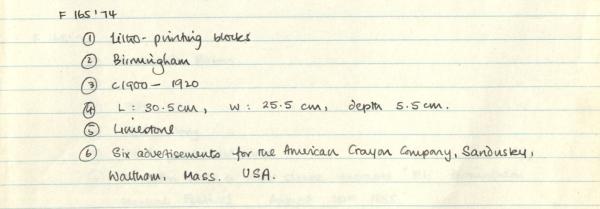 F 165'74
① Litho-printing blocks
② Birmingham
③ c1900 - 1920
④ L: 30.5cm, W: 25.5 cm, depth 5.5cm.
⑤ Limestone
⑥ Six advertisements for the American Crayon Company, Sandusky,
Waltham, Mass. USA.